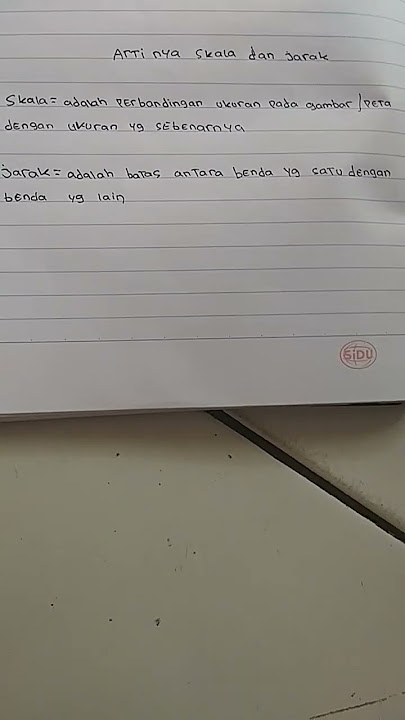 Arti nya skala dan jarak
Skala = adalah perbandingan ukuran pada gambar / peta
dengan ukuran yg sebenarnya
jarak = adalah batas antara benda yg satu dengan
benda yg lain
SiDU